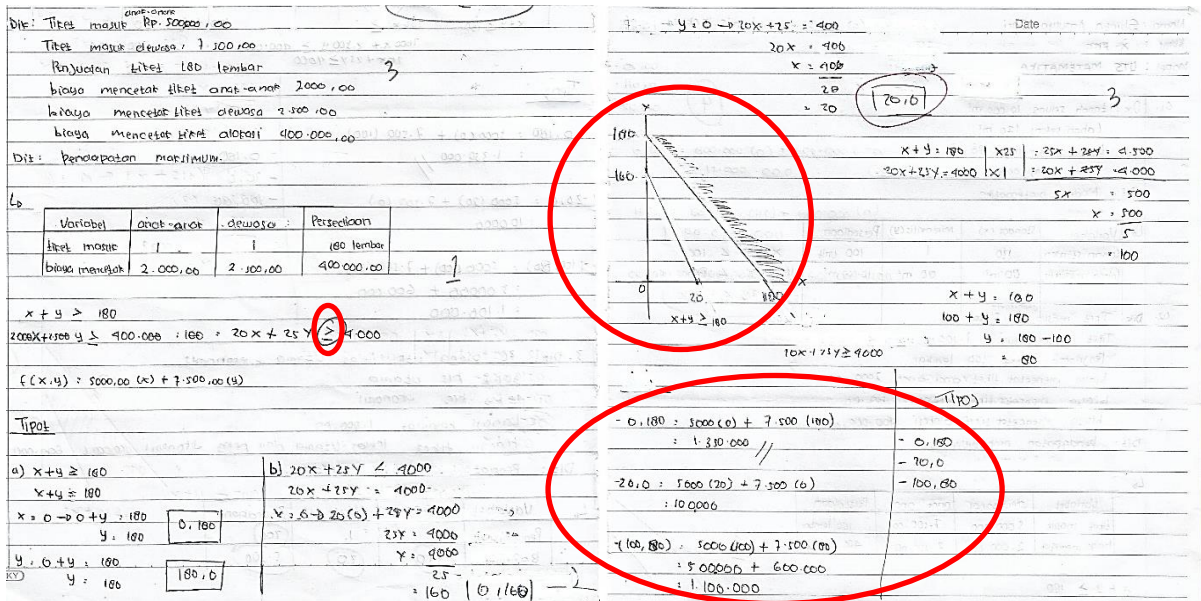 Dit: Tiket masuk anak-anak Rp. 500000,00
Tiket masuk dewasa: 7.500,00
Penjualan tiket 180 lembar
biaya mencetak tiket anak-anak 2000,00
3
biaya mencetak tiket dewasa 2.500,00
biaya mencetak tiket alokasi 400.000,00
Dit: Pendapatan maksimum.
Variabel anak-anak dewasa: Persediaan
tiket masuk 1 1 180 lembar
biaya mencetak 2.000,00 2.500,00 400.000,00
1
x + y ≥ 180
2000x+2500 y ≥ 400.000 :100 = 20x + 25y ≥ 4000
f(x,y) : 5000,00 (x) + 7.500,00 (y)
Tipot
a) x+y ≥ 180
x+y = 180
x = 0 → 0+y = 180
y = 180
0,180
y : 0+y = 180
y = 180
180,0
KY
b) 20x + 25y < 4000
20x + 25y = 4000
x = 0 → 20(0) + 25y = 4000
25y = 4000
y = 4000
25
= 160 (0,160)
Date
y = 0 → 20x +25 = 400
20x = 400
x = 400
20
= 20
20,0
3
180
160
0 20 180 x
x+y ≥ 180
20x+25y ≥ 4000
x + y = 180 | x25 | = 25x + 25y = 4.500
20x+25y = 4000 | x1 | = 20x + 25y = 4.000
5x = 500
x = 500
5
= 100
x + y = 180
100 + y = 180
y = 180 - 100
= 80
- 0,180 : 5000 (0) + 7.500 (180)
: 1.350.000
-20,0 : 5000 (20) + 7.500 (0)
: 100000
-(100,80) : 5000 (100) + 7.500 (80)
: 500000 + 600.000
: 1.100.000
- 0,180
- 20,0
- 100,80